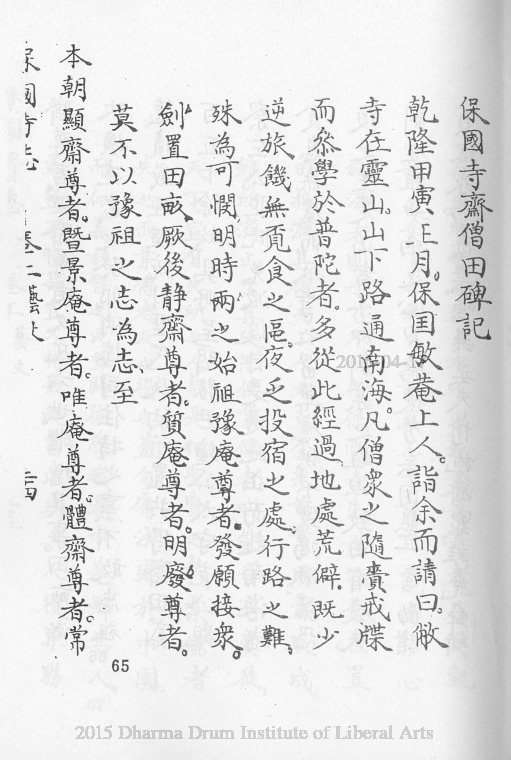 保國寺齋僧田碑記
乾隆甲寅正月。保国敏菴上人。詣余而請曰。敝
寺在靈山。山下路通南海。凡僧眾之隨賚戒牒
而叅學於普陀者。多從此經過。地處荒僻。既少
逆旅饑無覓食之區。夜乏投宿之處。行路之難。
殊為可憫。明時兩之始祖豫庵尊者。發願接眾。
劍置田畝。厥後静齋尊者。質庵尊者。明廢尊者。
莫不以豫祖之志為志。至
本朝顯齋尊者。暨景庵尊者。唯庵尊者。體齋尊者。常
保國寺志 卷二藝文
65
2015 Dharma Drum Institute of Liberal Arts